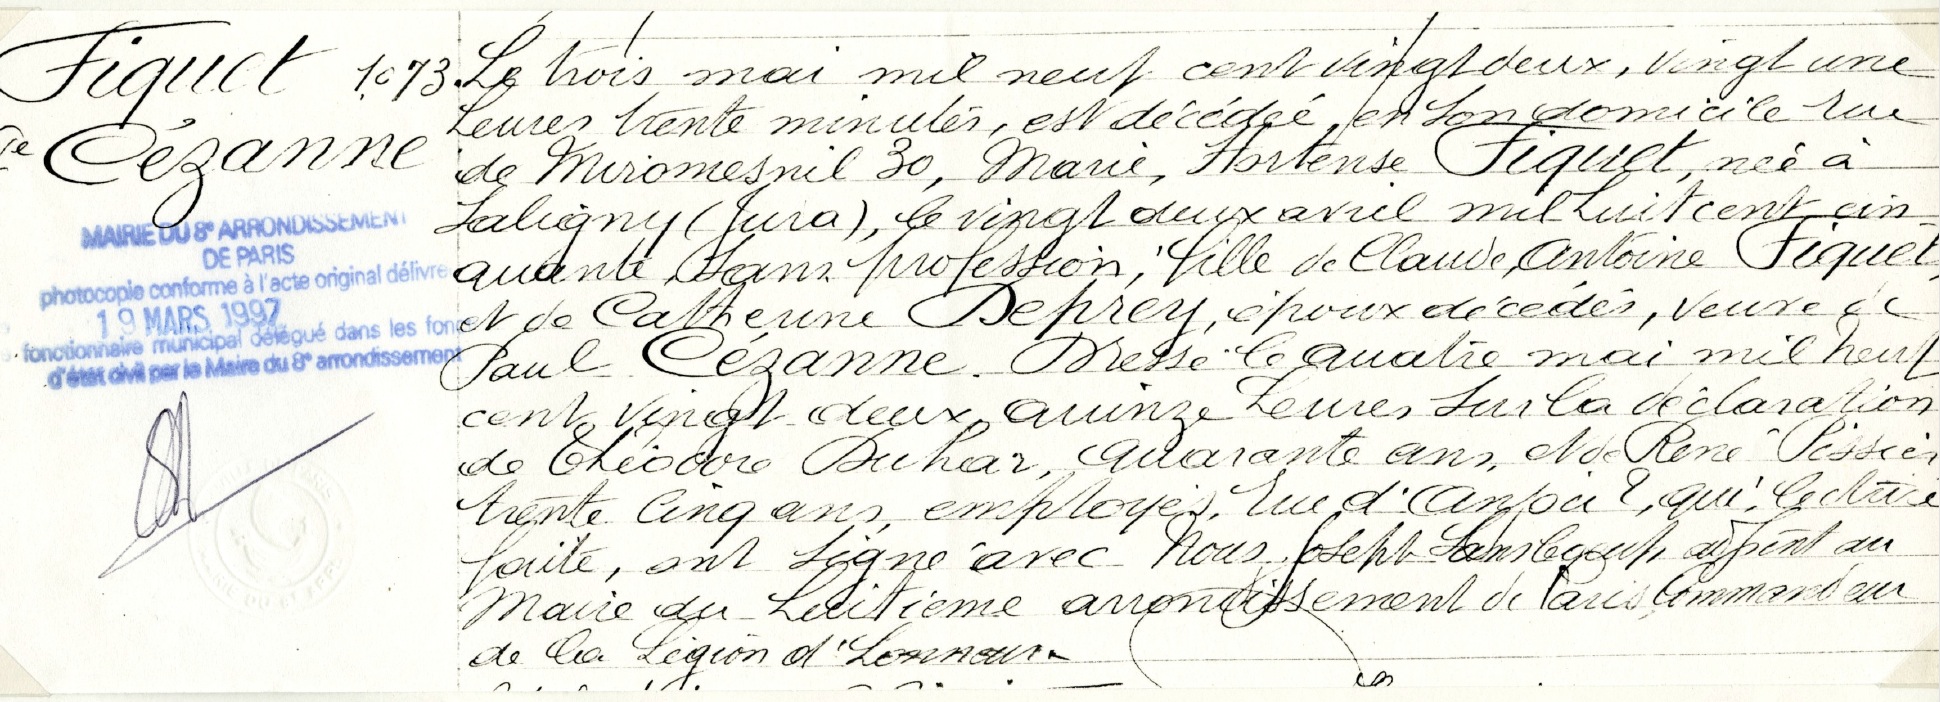 Fiquet 1073.
Ve Cézanne
MAIRIE DU 8e ARRONDISSEMENT
DE PARIS
photocopie conforme à l'acte original délivré
19 MARS 1997
fonctionnaire municipal délégué dans les fonc
d'état civil par le Maire du 8e arrondissement
Le trois mai mil neuf cent vingt deux, vingt une
heures trente minutes, est décédée, en son domicile rue
de Miromesnil 30, Marie, Hortense Fiquet, née à
Saligny (Jura), le vingt deux avril mil huit cent cin
quante, sans profession, fille de Claude, Antoine Fiquet,
et de Catherine Deprey, époux décédés, veuve de
Paul Cézanne. Dressé le quatre mai mil neuf
cent vingt deux, quinze heures sur la déclaration
de Théodore Duhar, quarante ans, et de René Pissier
trente cinq ans, employés, rue d'Anjou, qui, lecture
faite, ont signé avec Nous, Joseph adjoint au
Maire du huitième arrondissement de Paris, Commandeur
de la Légion d'honneur.